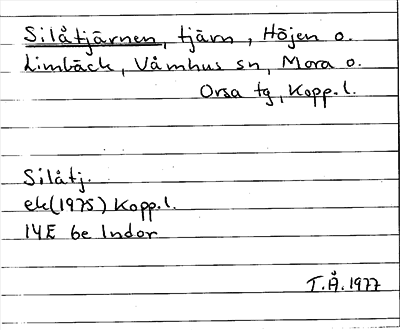 Silåtjärnen, tjärn, Höjen o.
Limbäck, Våmhus sn, Mora o.
Orsa tg, Kopp.l.
Silåtj.
ek(1975) Kopp.l.
14E 6e Indor
T.Å. 1977